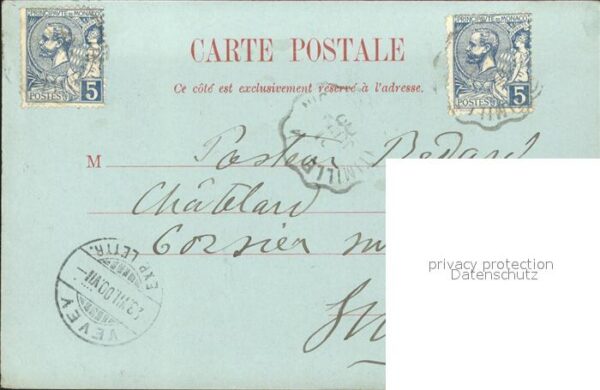 PRINCIPAUTÉ DE MONACO
POSTES 5
PRINCIPAUTÉ DE MONACO
POSTES 5
CARTE POSTALE
Ce côté est exclusivement réservé à l'adresse.
M Pasteur Bedard
Châtelard
Corsier
VEVEY
EXP. LETTR.
privacy protection
Datenschutz